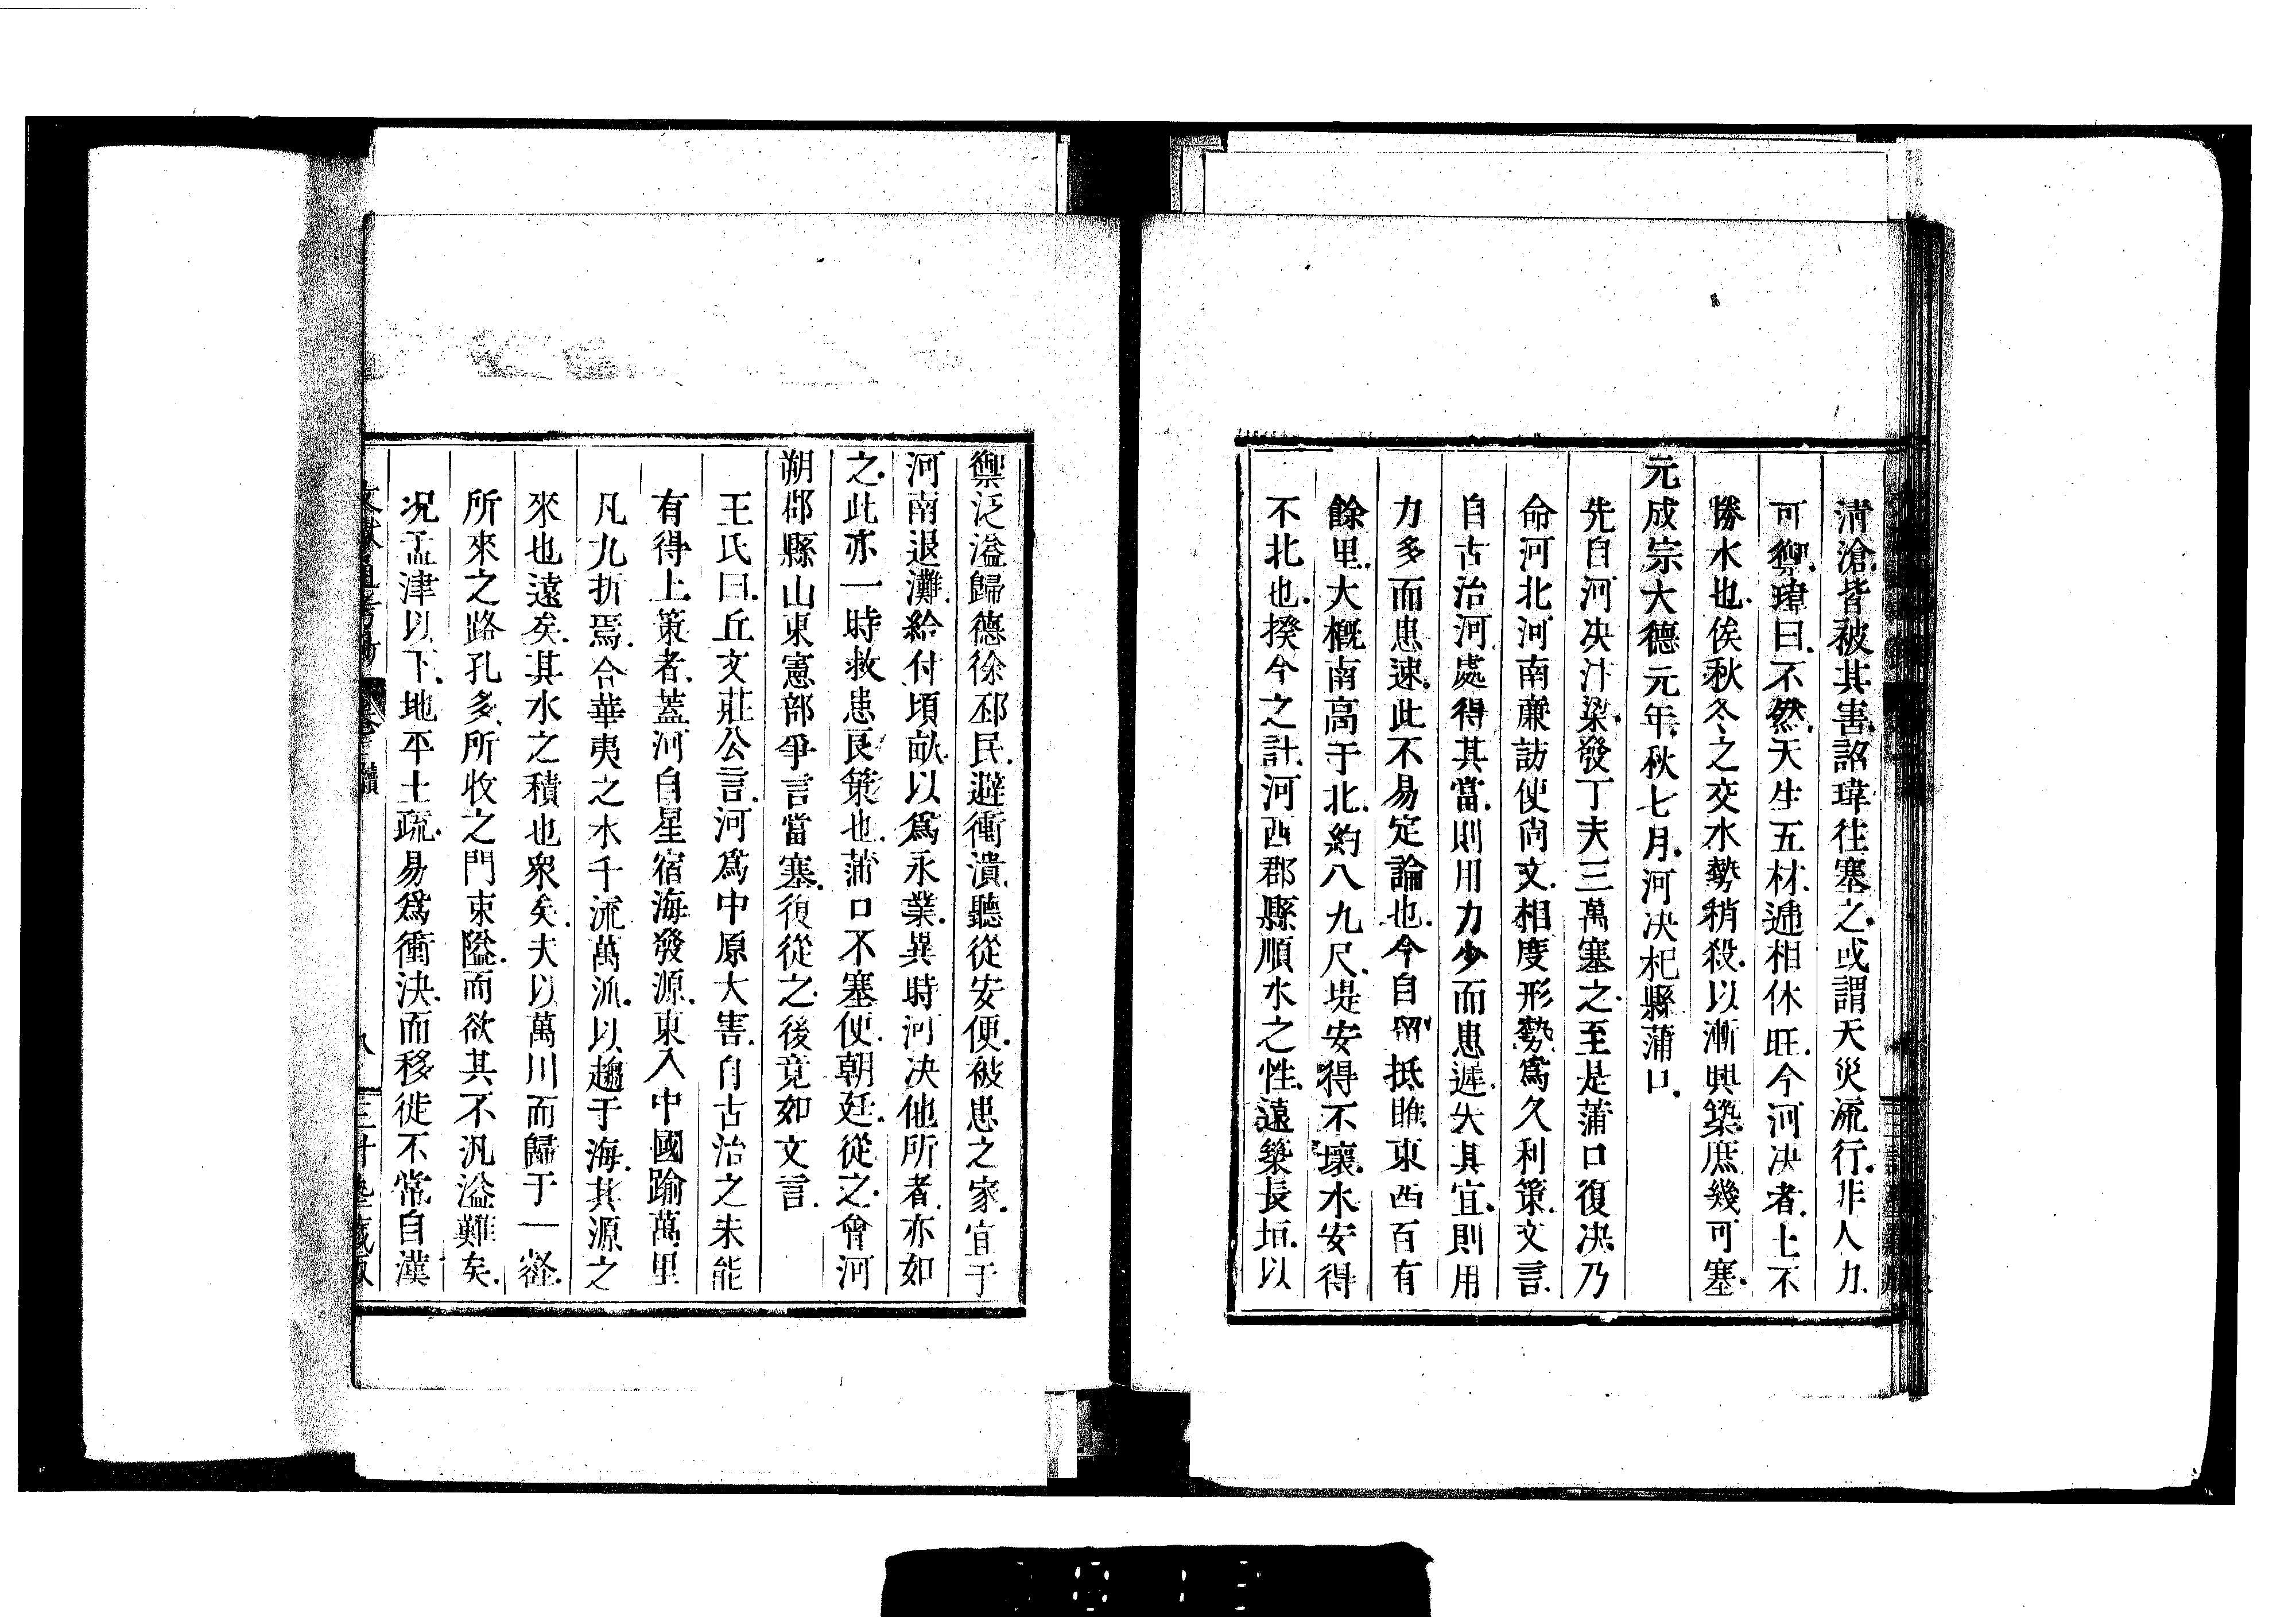 清滄皆被其害詔瑋往塞之或謂天災流行非人力
可禦瑋曰不然天生五材逓相休旺今河决者土不
勝水也俟秋冬之交水勢稍殺以漸興築庶幾可塞
元成宗大德元年秋七月河决杞縣蒲口
先自河决汴梁發丁夫三萬塞之至是蒲口復决乃
命河北河南亷訪使尚文相度形勢爲久利策文言
自古治河處得其當則用力少而患遲失其宜則用
力多而患速此不易定論也今自陳留抵睢東西百有
餘里大概南高于北約八九尺堤安得不壞水安得
不北也揆今之計河西郡縣順水之性遠築長垣以
禦泛溢歸德徐邳民避衝潰聽從安便被患之家宜于
河南退灘給付頃畝以爲永業異時河决他所者亦如
之此亦一時救患良策也蒲口不塞便朝廷從之會河
朔郡縣山東憲部爭言當塞復從之後竟如文言
王氏曰丘文莊公言河爲中原大害自古治之未能
有得上策者蓋河自星宿海發源東入中國踰萬里
凡九折焉合華夷之水千流萬派以趨于海其源之
來也遠矣其水之積也衆矣夫以萬川而歸于一壑
所來之路孔多所收之門束隘而欲其不汎溢難矣
况孟津以下地平土疏易爲衝決而移徙不常自漢